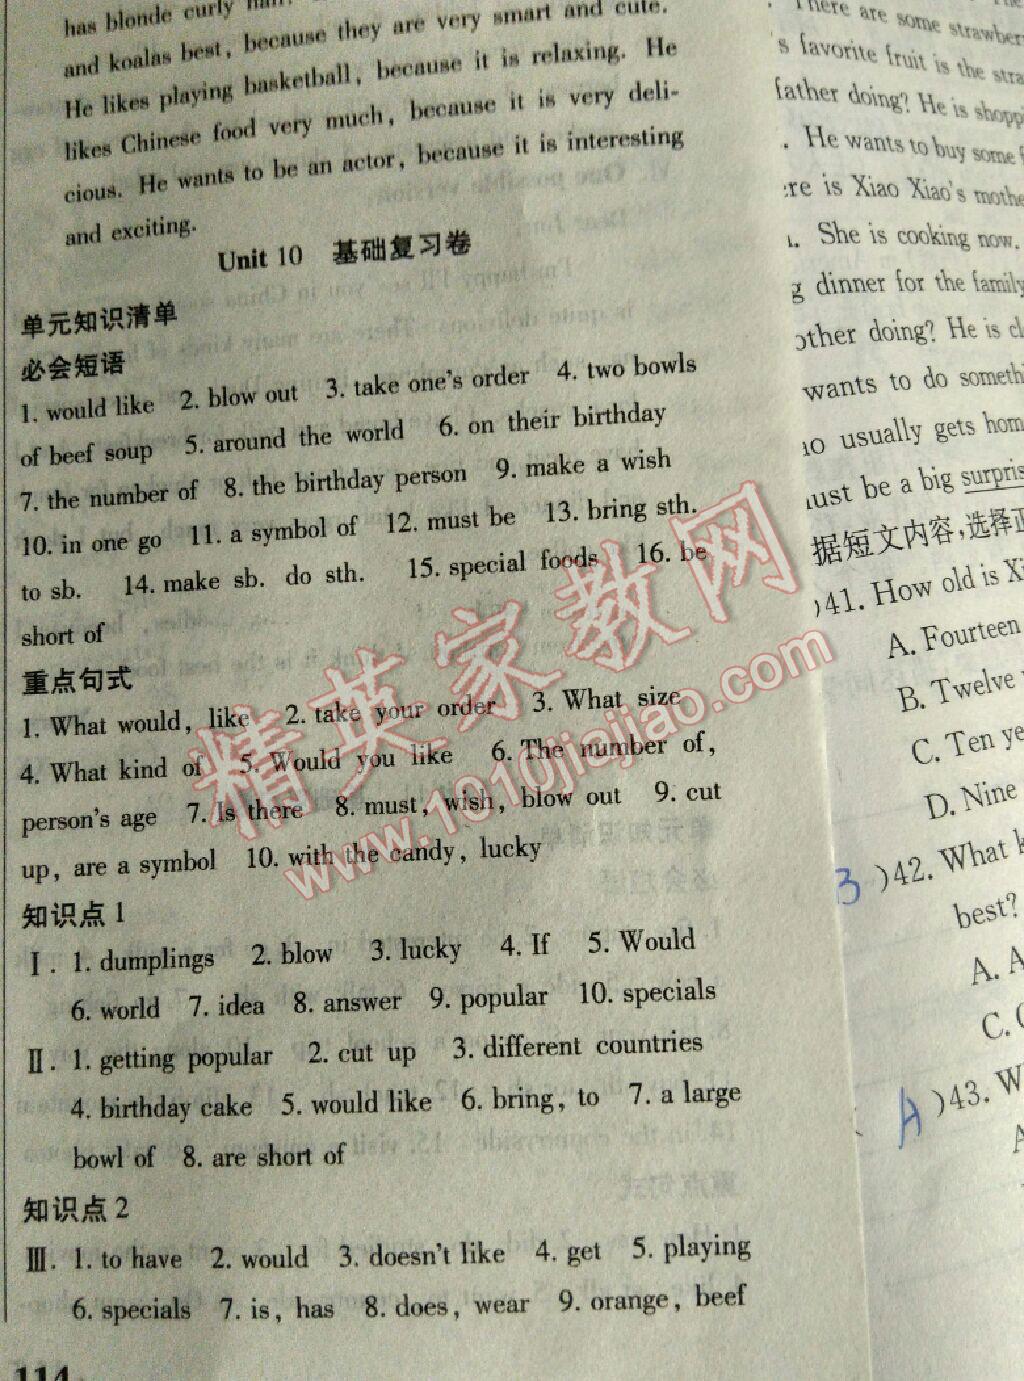 has blonde curly
and koalas best, because they are very smart and cute.
He likes playing basketball, because it is relaxing. He
likes Chinese food very much, because it is very deli-
cious. He wants to be an actor, because it is interesting
and exciting.
Unit 10 基础复习卷
单元知识清单
必会短语
1. would like 2. blow out 3. take one's order 4. two bowls
of beef soup 5. around the world 6. on their birthday
7. the number of 8. the birthday person 9. make a wish
10. in one go 11. a symbol of 12. must be 13. bring sth.
to sb. 14. make sb. do sth. 15. special foods 16. be
short of
重点句式
1. What would, like 2. take your order 3. What size
4. What kind of 5. Would you like 6. The number of,
person's age 7. Is there 8. must, wish, blow out 9. cut
up, are a symbol 10. with the candy, lucky
知识点1
Ⅰ. 1. dumplings 2. blow 3. lucky 4. If 5. Would
6. world 7. idea 8. answer 9. popular 10. specials
Ⅱ. 1. getting popular 2. cut up 3. different countries
4. birthday cake 5. would like 6. bring, to 7. a large
bowl of 8. are short of
知识点2
Ⅲ. 1. to have 2. would 3. doesn't like 4. get 5. playing
6. specials 7. is, has 8. does, wear 9. orange, beef
114
精英家教网
www.1010jiajiao.com
There are some strawber
's favorite fruit is the stra
father doing? He is shoppi
. He wants to buy some
ere is Xiao Xiao's mothe
. She is cooking now.
g dinner for the family
other doing? He is cl
wants to do somethi
ao usually gets hom
ust be a big surpris
据短文内容,选择正
)41. How old is Xi
A. Fourteen
B. Twelve
C. Ten ye
D. Nine
B )42. What k
best?
A. A
C.
A )43. W
A